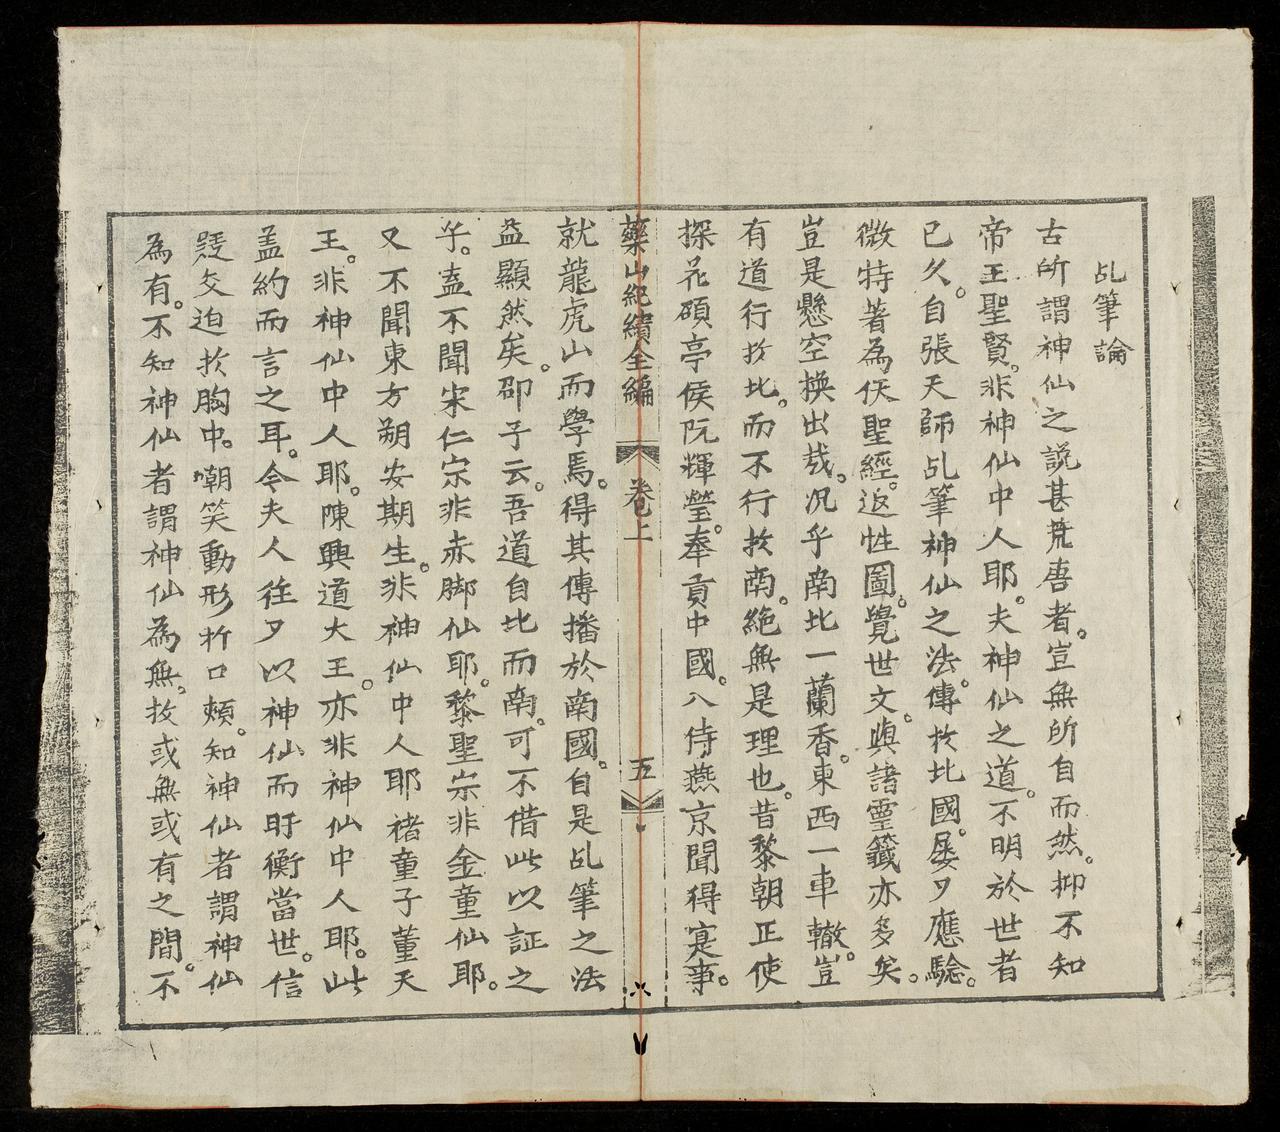 乩筆論
古所謂神仙之說甚荒唐者。豈無所自而然。抑不知
帝王聖賢。非神仙中人耶。夫神仙之道。不明於世者
已久。自張天師乩筆神仙之法。傳扵北國。屡夕應驗。
微特著為伏聖經。返性圖。覺世文。與諸靈籤亦多矣。
豈是懸空換出㢤。况乎南北一蘭香。東西一車轍。豈
有道行扵北。而不行扵南。絶無是理也。昔黎朝正使
探花碩亭侯阮輝瑩。奉貢中國。入侍燕京聞得寔事。
藥山紀績全編 卷上 五
就龍虎山而學焉。得其傳播於南國。自是乩筆之法
益顯然矣。邵子云。吾道自北而南。可不借此以証之
乎。盍不聞宋仁宗非赤脚仙耶。黎聖宗非金童仙耶。
又不聞東方朔安期生。非神仙中人耶褚童子董天
王。非神仙中人耶。陳興道大王。亦非神仙中人耶。此
盖約而言之耳。今夫人徃夕以神仙而盱衡當世。信
疑交迫扵胸中。嘲笑動形扵口頰。知神仙者謂神仙
為有。不知神仙者謂神仙為無。故或無或有之間。不